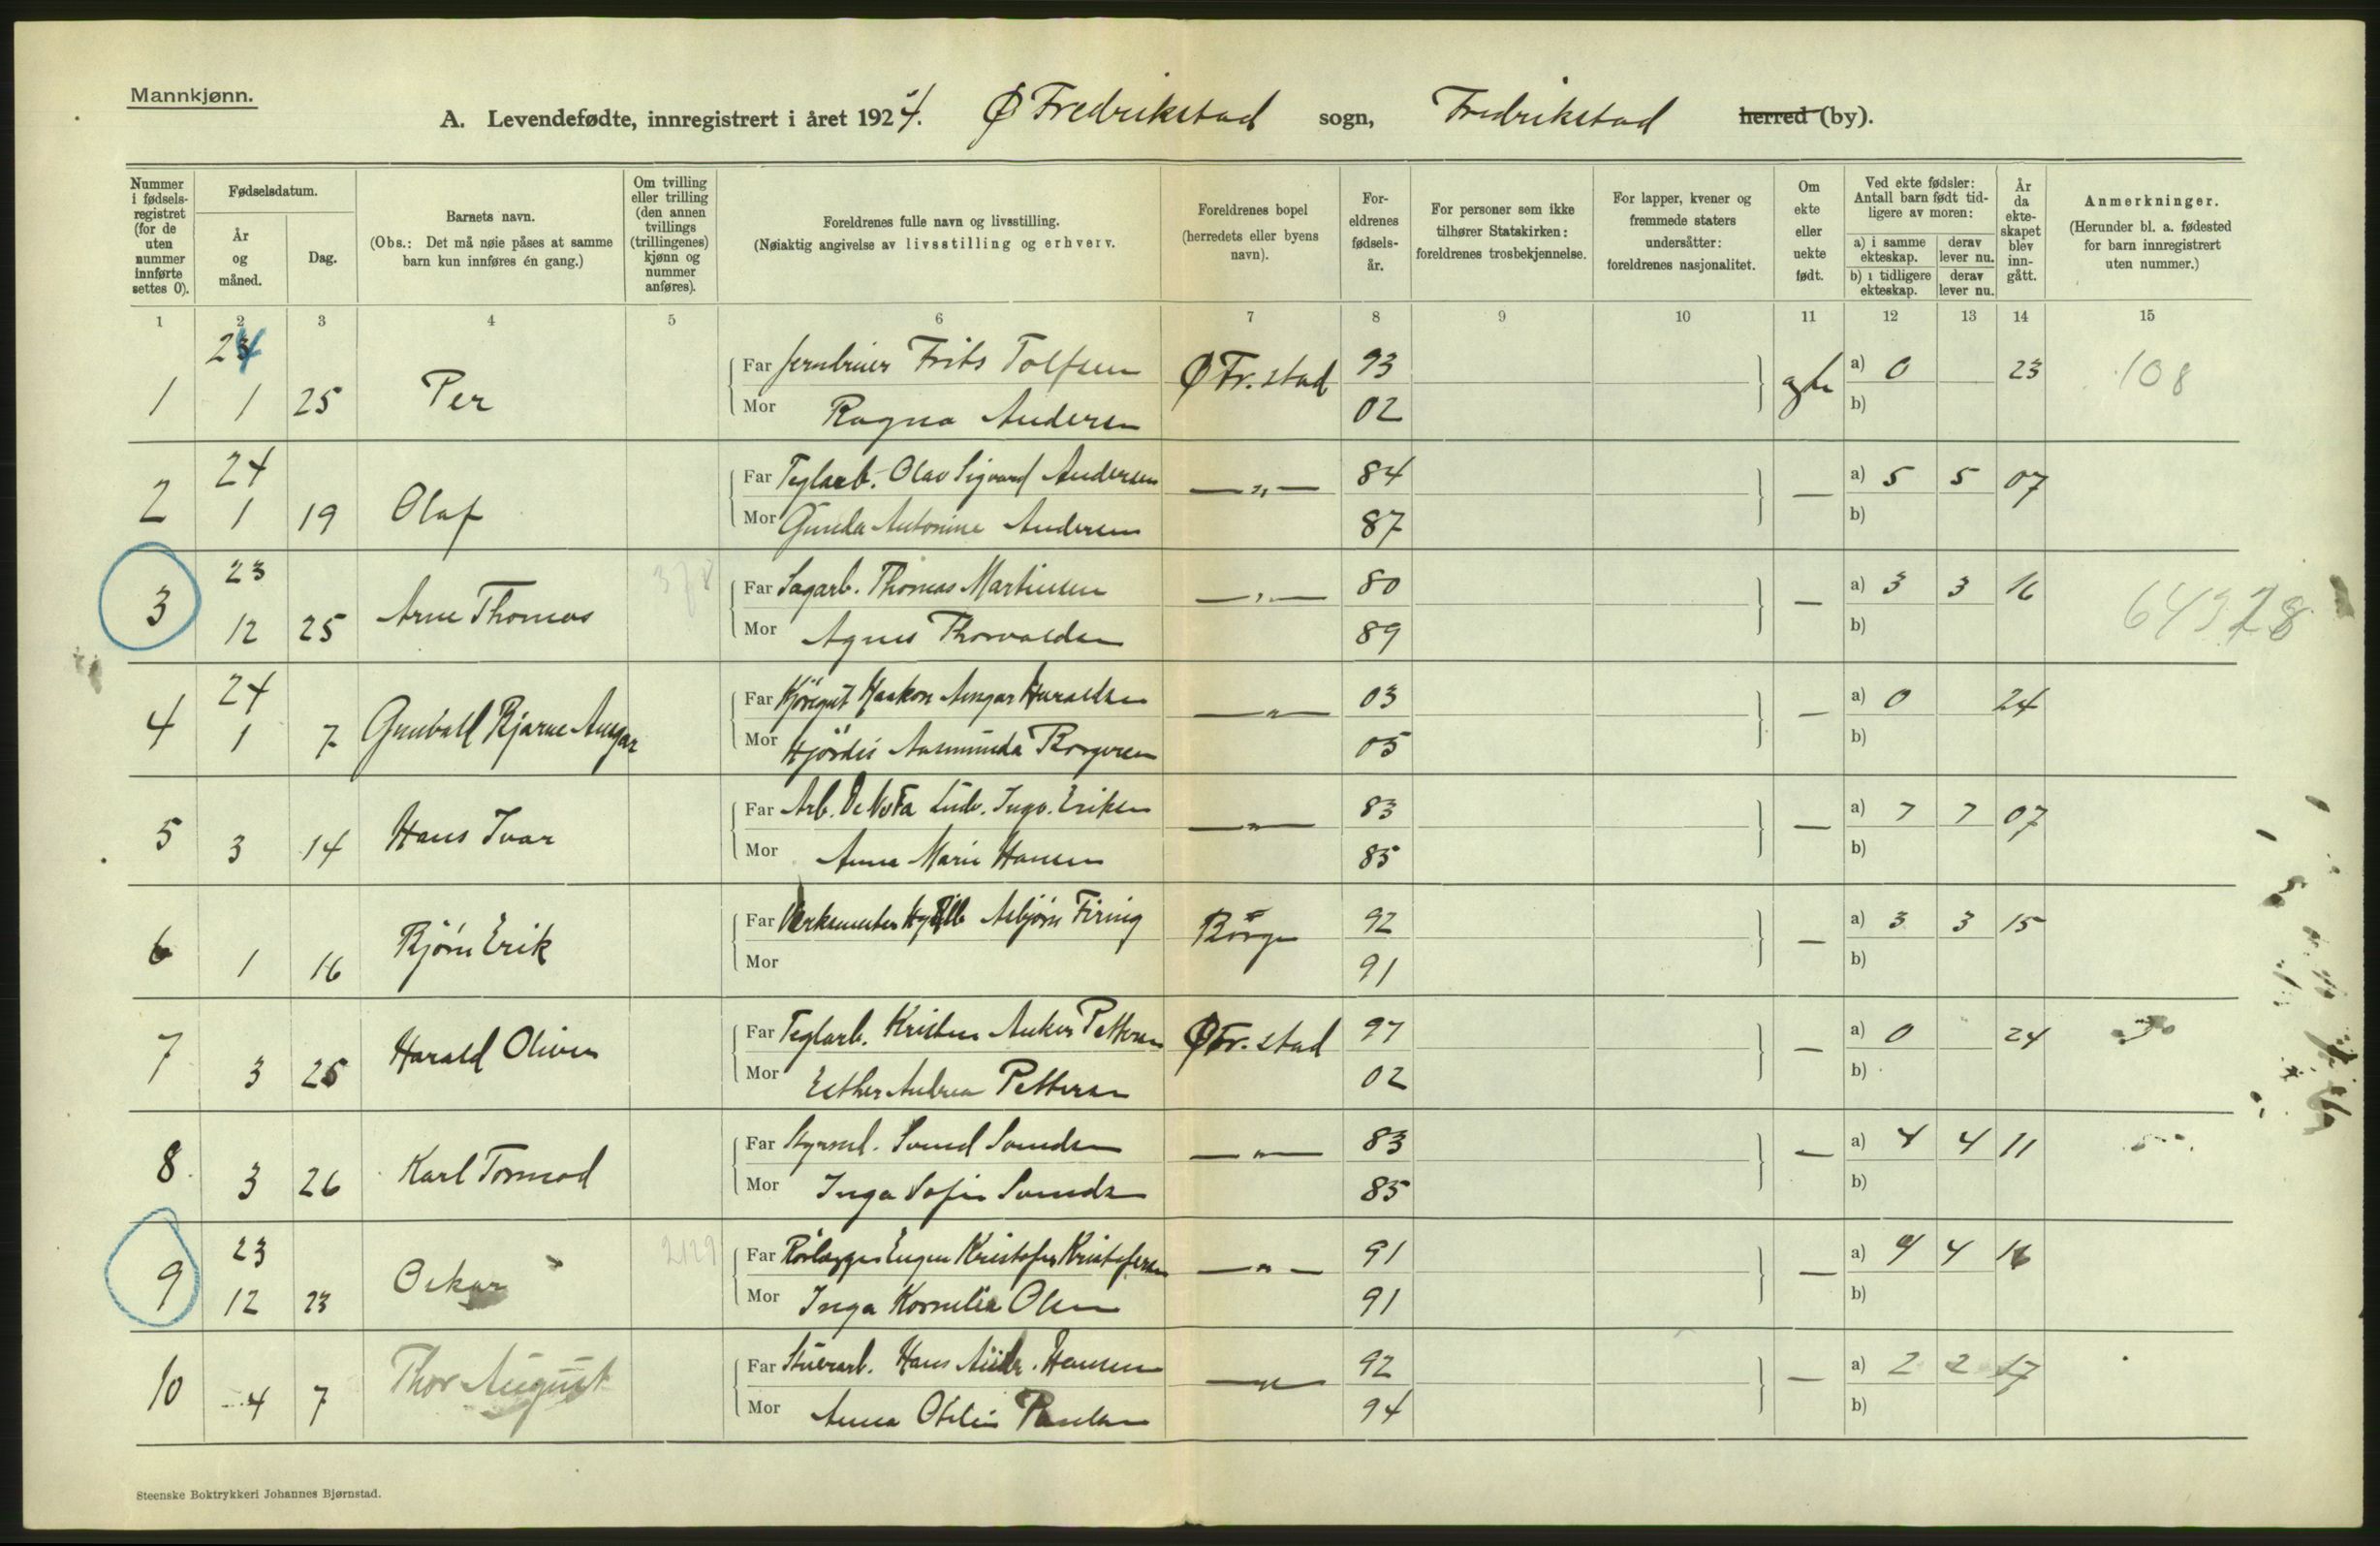 Mannkjønn.
A. Levendefødte, innregistrert i året 1924. Ø Fredrikstad sogn, Fredrikstad herred (by).
Nummer i fødselsregistret (for de uten nummer innførte settes 0).
Fødselsdatum.
År og måned.
Dag.
Barnets navn.
(Obs.: Det må nøie påses at samme barn kun innføres én gang.)
Om tvilling eller trilling (den annen tvillings (trillingenes) kjønn og nummer anføres).
Foreldrenes fulle navn og livsstilling.
(Nøiaktig angivelse av livsstilling og erhverv.
Foreldrenes bopel (herredets eller byens navn).
Foreldrenes fødselsår.
For personer som ikke tilhører Statskirken: foreldrenes trosbekjennelse.
For lapper, kvener og fremmede staters undersåtter: foreldrenes nasjonalitet.
Om ekte eller uekte født.
Ved ekte fødsler: Antall barn født tidligere av moren:
a) i samme ekteskap.
derav lever nu.
b) i tidligere ekteskap.
derav lever nu.
År da ekteskapet blev inngått.
Anmerkninger.
(Herunder bl. a. fødested for barn innregistrert uten nummer.)
1 2 3 4 5 6 7 8 9 10 11 12 13 14 15
24
1 1 25 Per
Far Frits Tolfsen Ø Fr.stad 93 a) 0 23 108
Mor Ragna Andersen 02 b)
24
2 1 19 Olaf
Far Teglarb. Olav Sigvard Andersen — „ — 84 — a) 5 5 07
Mor Gunda Antonine Andersen 87 b)
23
3 12 25 Arne Thomas 378
Far Sagarb. Thomas Martinsen — „ — 80 — a) 3 3 16
Mor Agnes Thorvaldsen 89 b)
24
4 1 7 Bjarne Ansgar
Far Haakon Ansgar Haraldsen — „ — 03 — a) 0 24
Mor Hjördis Aasmunda Borgersen 05 b)
5 3 14 Hans Ivar
Far Arb. Ludv. Ingv. Eriksen — „ — 83 — a) 7 7 07
Mor Anna Marie Hansen 85 b)
6 1 16 Bjørn Erik
Far Verksmester Asbjørn Firing Borge 92 — a) 3 3 15
Mor 91 b)
7 3 25 Harald Oliver
Far Teglarb. Kristen Anker Pettersen Ø Fr.stad 97 — a) 0 24
Mor Esther Andrea Pettersen 02 b)
8 3 26 Karl Tormod
Far Styrm. Svend Svendsen — „ — 83 — a) 4 4 11
Mor Inga Sofie Svendsen 85 b)
23
9 12 23 Oskar 2129
Far Rørlægger Eugen Kristofer Kristofersen — „ — 91 — a) 4 4 16
Mor Inga Kornelia Olsen 91 b)
10 4 7 Thor August
Far Stuerarb. Hans Andr. Hansen — „ — 92 — a) 2 2 17
Mor Anna Otilie Paulsen 94 b)
Steenske Boktrykkeri Johannes Bjørnstad.